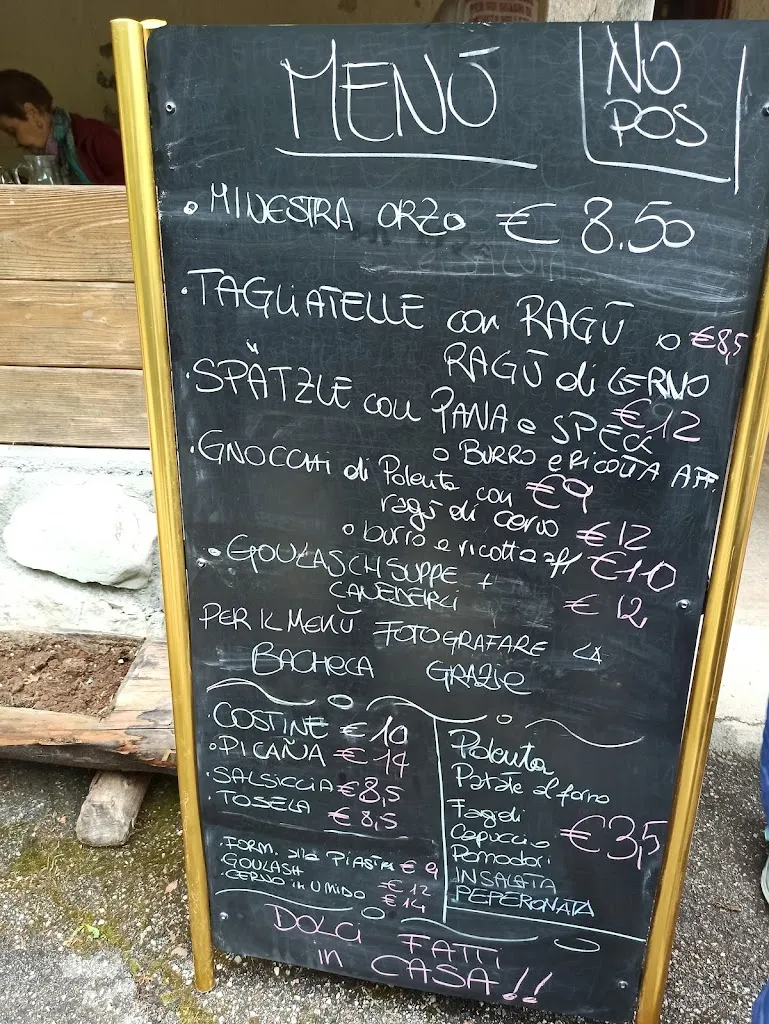 MENÙ
NO
POS
• MINESTRA ORZO € 8.50
• TAGLIATELLE con RAGÙ o €8,5
RAGÙ di CERVO
€12
• SPÄTZLE con PANA e SPECK
o BURRO e RICOTTA AFF.
€9
• GNOCCHI di Polenta con
ragù di cervo €12
o burro e ricotta aff €10
• GOULASCHSUPPE +
CANEDERLI € 12
PER IL MENÙ FOTOGRAFARE LA
BACHECA GRAZIE
• COSTINE € 10
• PICAÑA € 14
• SALSICCIA €8,5
• TOSELA € 8,5
• FORM. alla PIASTRA € 9
GOULASH € 12
• CERVO in UMIDO € 14
Polenta
Patate al forno
Fagioli
Capuccio
Pomodori
INSALATA
PEPERONATA
€3,5
DOLCI FATTI
in CASA!!